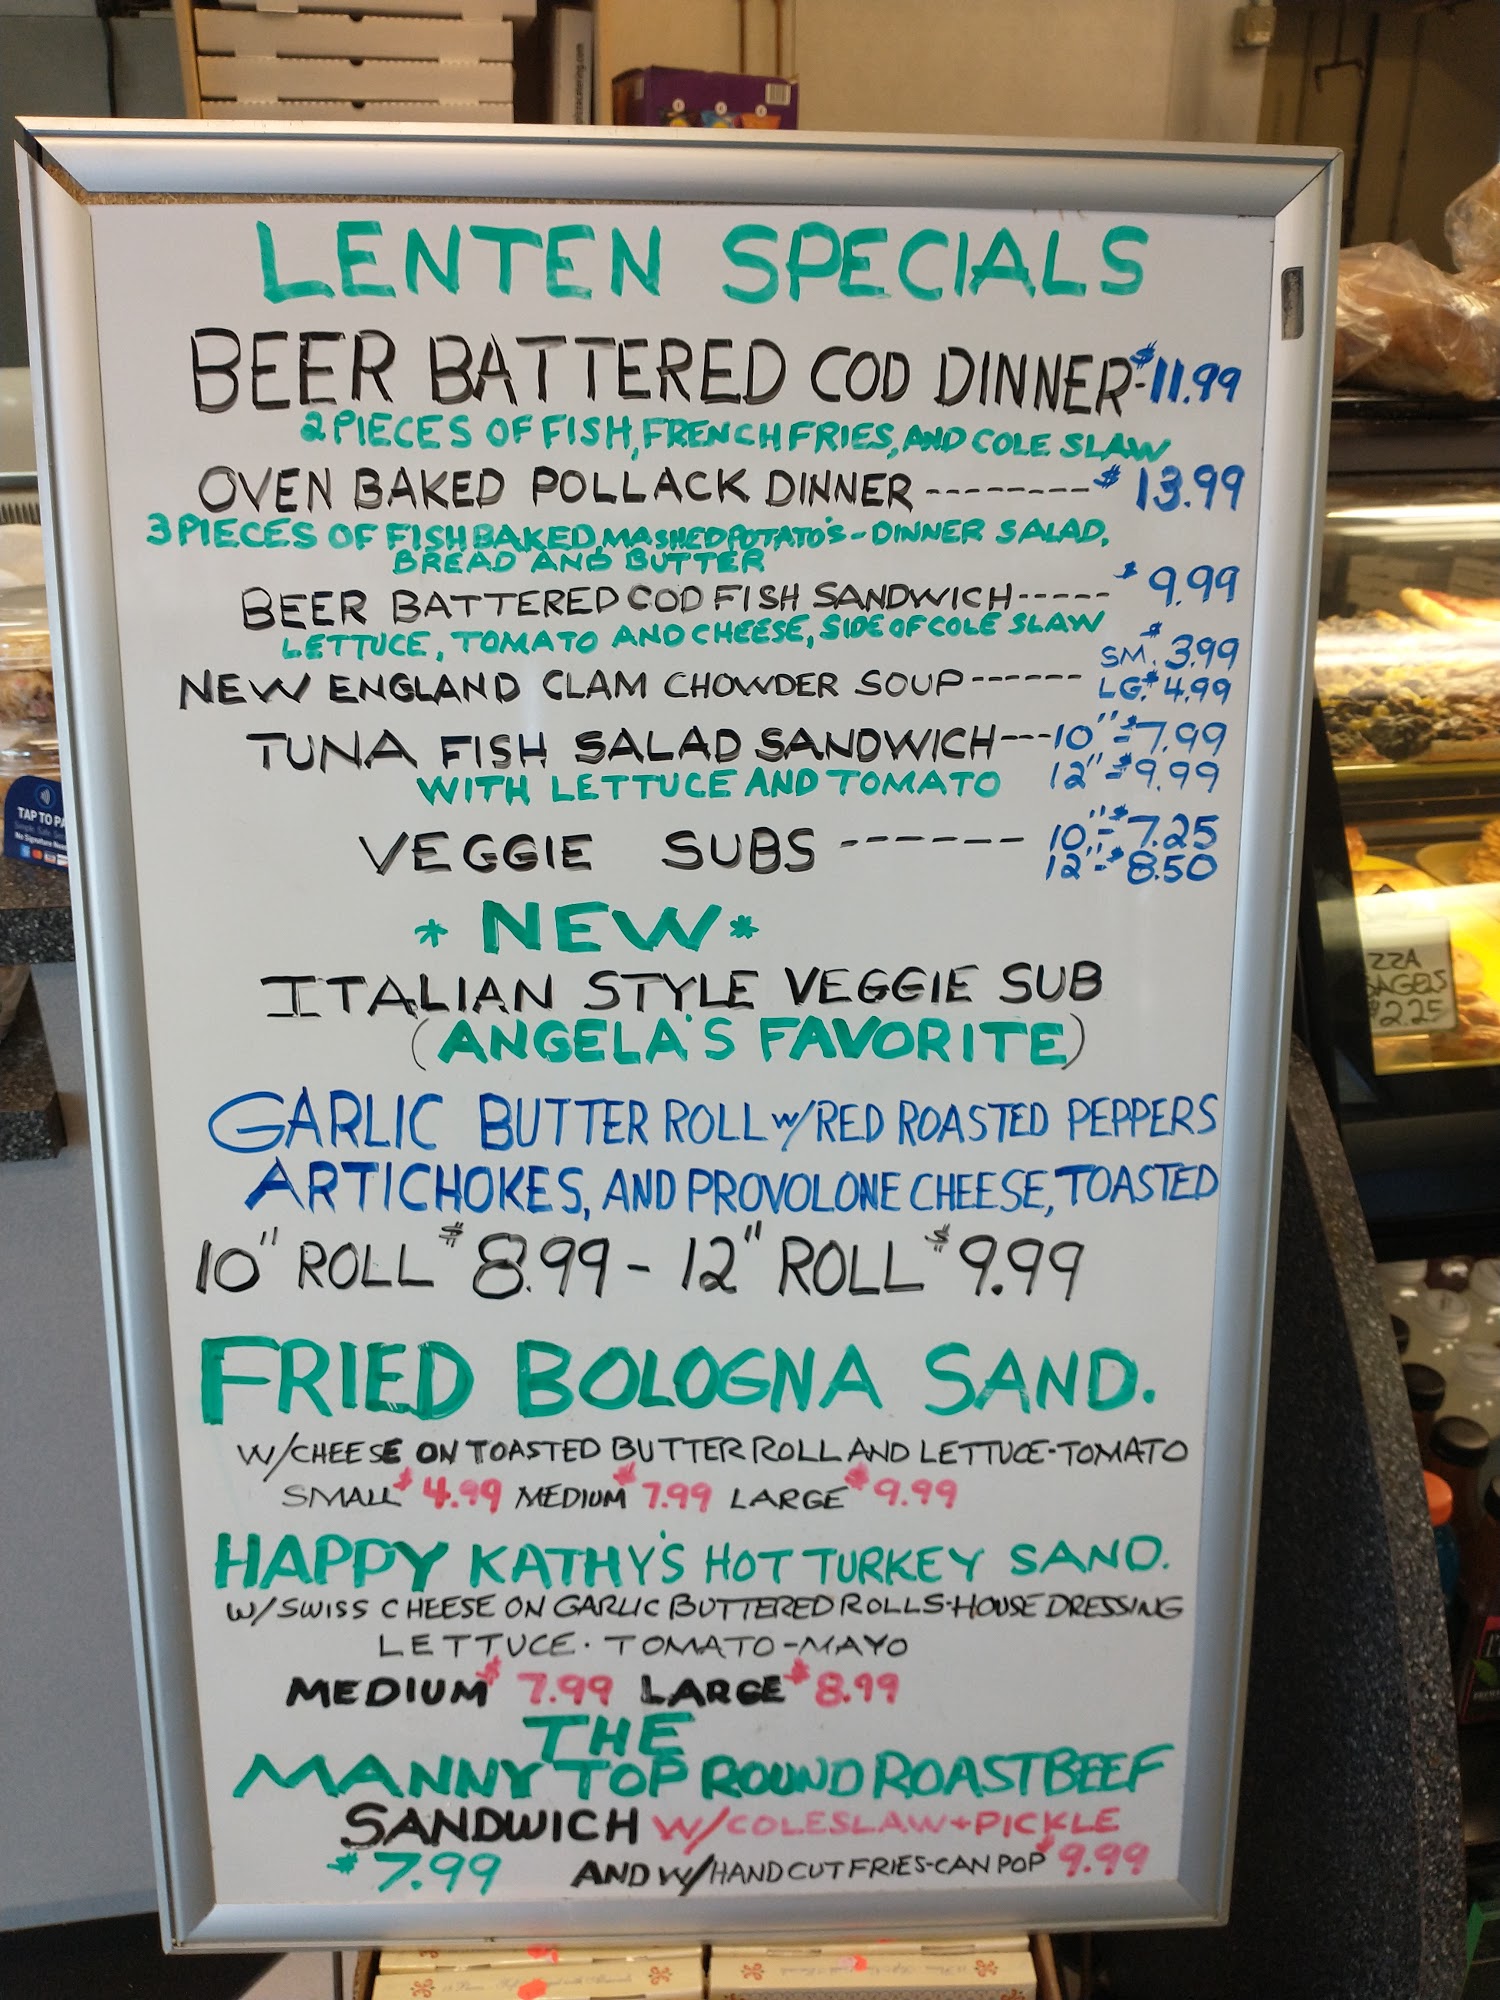 LENTEN SPECIALS
BEER BATTERED COD DINNER-$11.99
2 PIECES OF FISH, FRENCH FRIES, AND COLE SLAW
OVEN BAKED POLLACK DINNER --------$ 13.99
3 PIECES OF FISH BAKED, MASHED POTATO'S - DINNER SALAD,
BREAD AND BUTTER
BEER BATTERED COD FISH SANDWICH----- $ 9.99
LETTUCE, TOMATO AND CHEESE, SIDE OF COLE SLAW
NEW ENGLAND CLAM CHOWDER SOUP------ SM. $3.99
LG. $4.99
TUNA FISH SALAD SANDWICH---10"=$7.99
WITH LETTUCE AND TOMATO 12"=$9.99
VEGGIE SUBS ------ 10"=$7.25
12"=$8.50
* NEW *
ITALIAN STYLE VEGGIE SUB
(ANGELA'S FAVORITE)
GARLIC BUTTER ROLL W/RED ROASTED PEPPERS
ARTICHOKES, AND PROVOLONE CHEESE, TOASTED
10" ROLL $8.99 - 12" ROLL $9.99
FRIED BOLOGNA SAND.
W/CHEESE ON TOASTED BUTTER ROLL AND LETTUCE-TOMATO
SMALL $4.99 MEDIUM $7.99 LARGE $9.99
HAPPY KATHY'S HOT TURKEY SAND.
W/SWISS CHEESE ON GARLIC BUTTERED ROLLS-HOUSE DRESSING
LETTUCE-TOMATO-MAYO
MEDIUM $7.99 LARGE $8.99
THE
MANNY TOP ROUND ROAST BEEF
SANDWICH W/COLESLAW+PICKLE
$7.99 AND W/HAND CUT FRIES-CAN POP $9.99
TAP TO PA
ZZA
BAGELS
$2.25